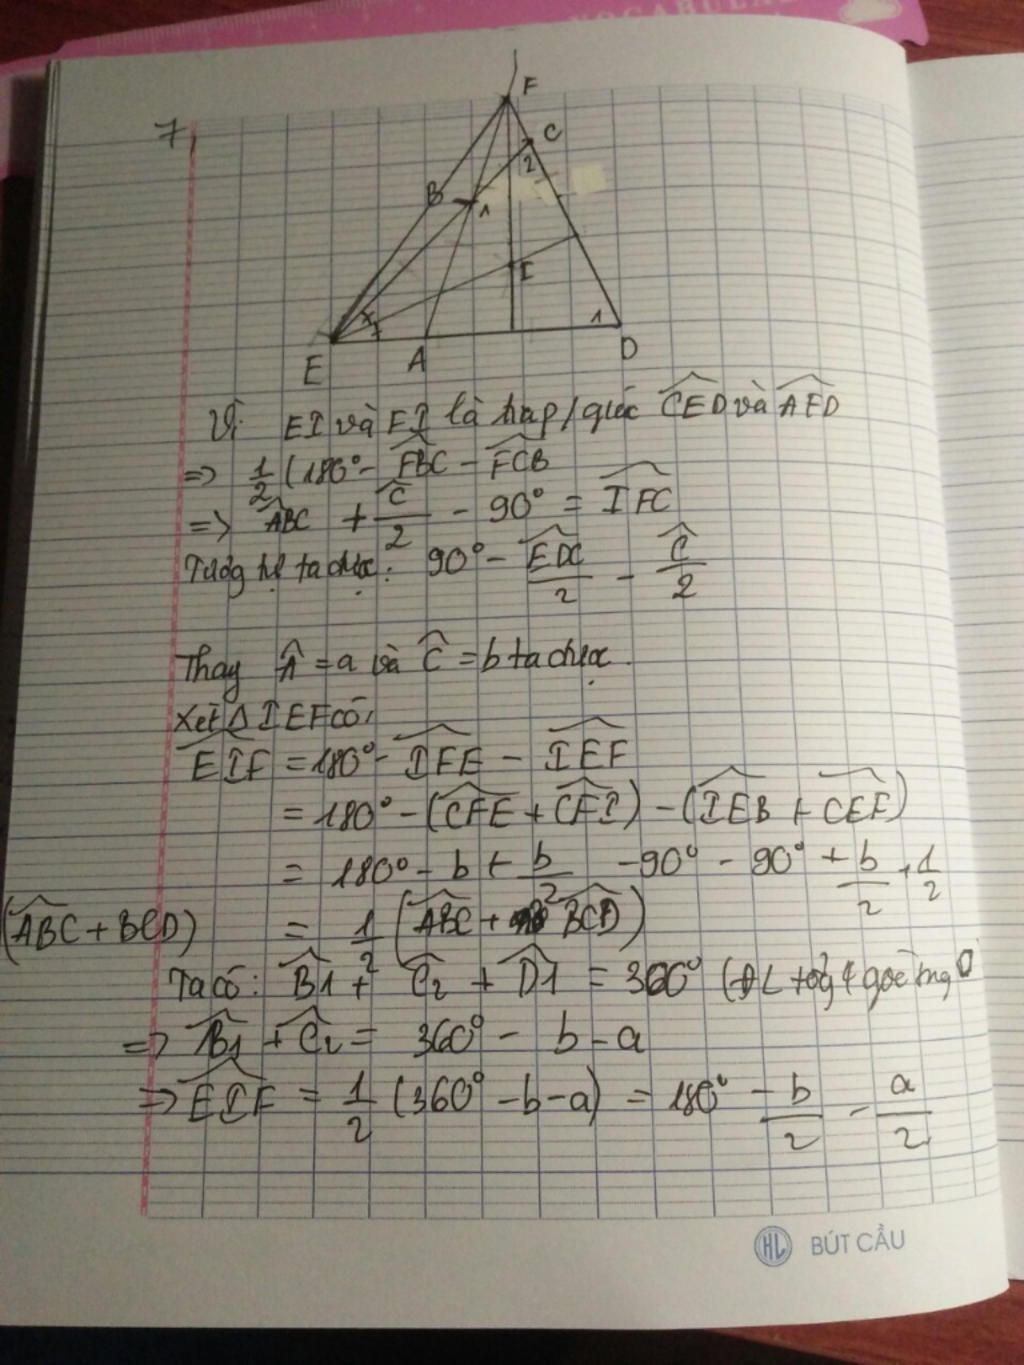 VOCABULA
7,
F
C
2
B
1
I
1
E
A
D
Vì EI và FI là hai p/giác CED và AFD
=> 1/2 (180° - FBC - FCB
=> ABC + C/2 - 90° = IFC
Tương tự ta được: 90° - EDC/2 - C/2
Thay A = a và C = b ta được.
Xét Δ IEF có,
EIF = 180° - IFE - IEF
= 180° - (CFE + CFI) - (IEB + CEF)
= 180° - b + b/2 - 90° - 90° + b/2 + 1/2
(ABC + BCD) = 1/2 (ABC + BCD)
Ta có: B1 + C2 + D1 = 360° (ĐL tổng 4 góc
=> B1 + C2 = 360° - b - a
=> EIF = 1/2 (360° - b - a) = 180° - b/2 - a/2
HL BÚT CẦU